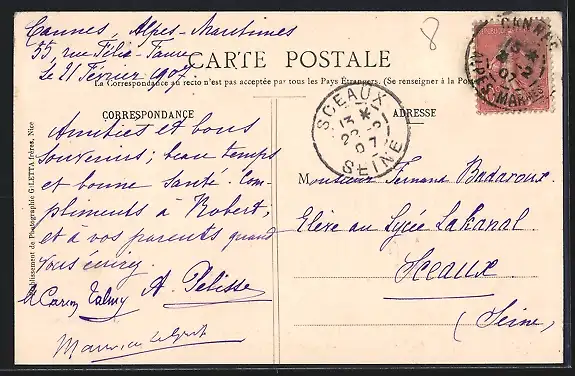 Cannes, Alpes-Maritimes
55, rue Félix-Faure
Le 21 Février 1907.
8
CARTE POSTALE
La Correspondance au recto n'est pas acceptée par tous les Pays Étrangers. (Se renseigner à la Poste
CORRESPONDANCE
ADRESSE
Amitiés et bons
souvenirs; beau temps
et bonne santé. Com-
pliments à Robert,
et à vos parents quand
vous écrirez.
Talmy A. Pelisse
Maurice
Monsieur Fernand Badaroux
Elève au Lycée Lakanal
Sceaux
(Seine)
SCEAUX
13 *
22 -2
07
SEINE
CANNES
15 *
-2
07
ALPES MARMES
Établissement de Photographie GILETTA frères, Nice